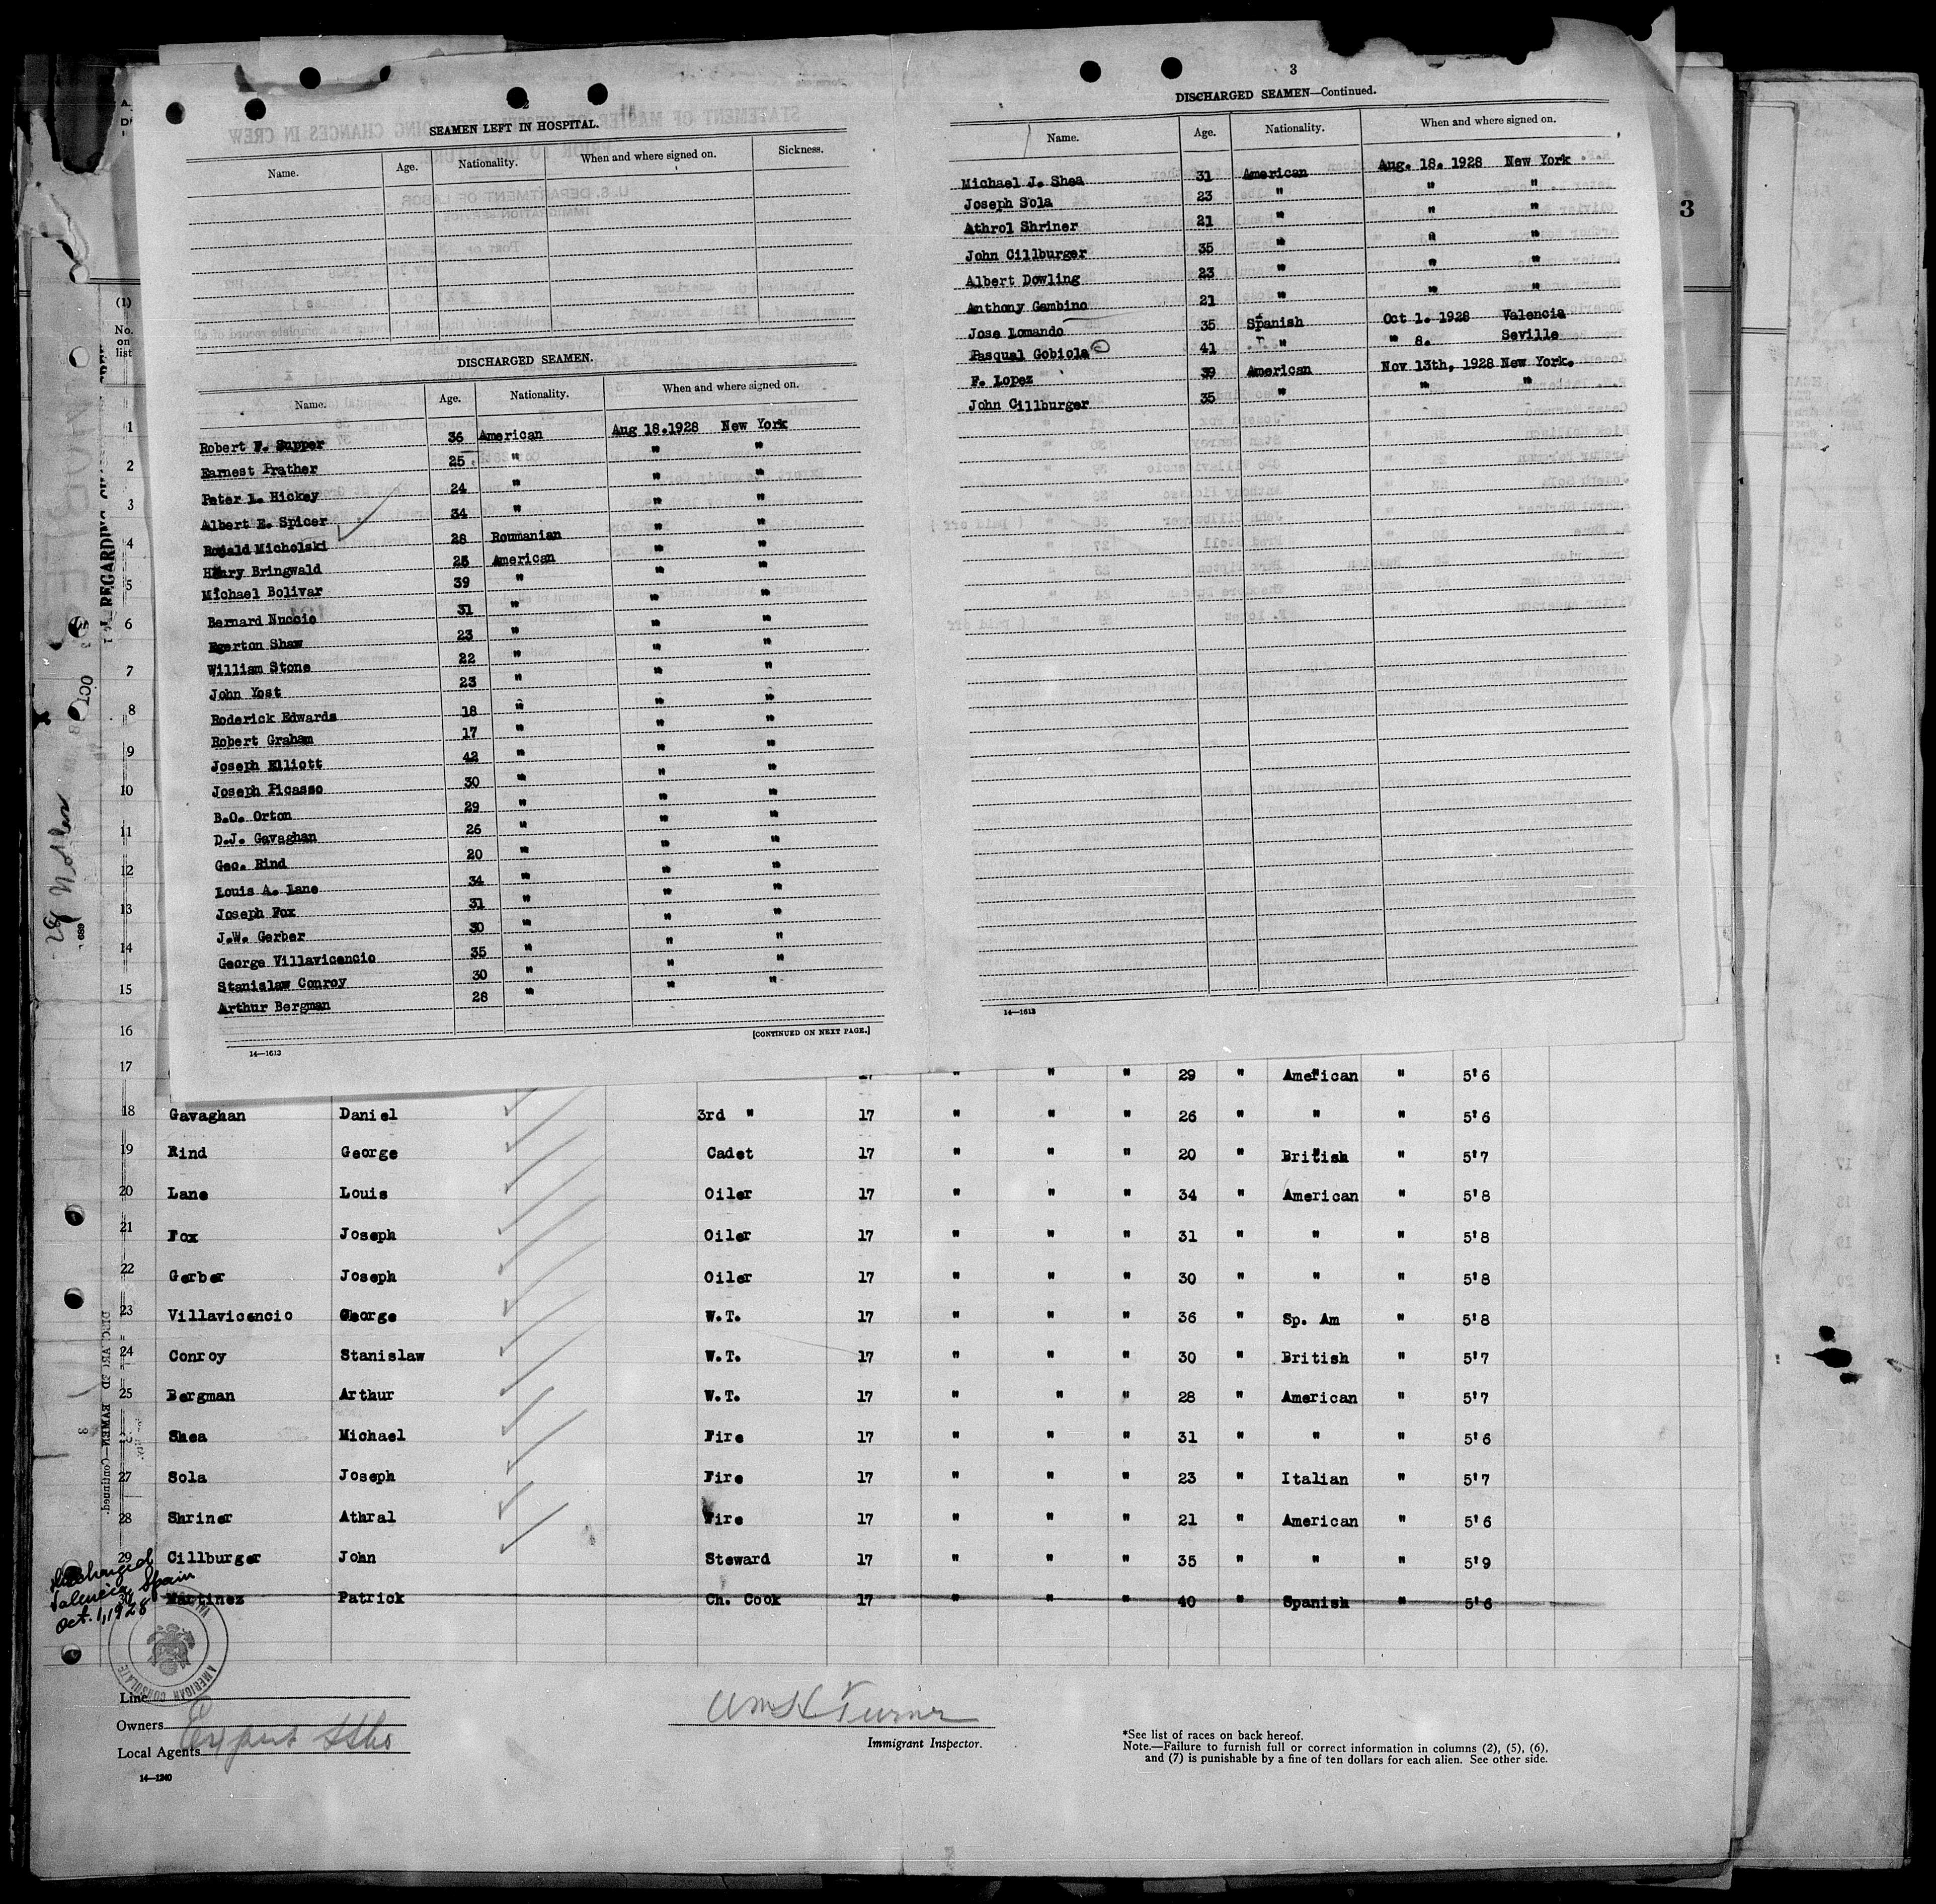 2
SEAMEN LEFT IN HOSPITAL.
Name. Age. Nationality. When and where signed on. Sickness.
DISCHARGED SEAMEN.
Name. Age. Nationality. When and where signed on.
Robert F. Supper 36 American Aug 18.1928 New York
Earnest Prather 25 " " "
Peter L. Hickey 24 " " "
Albert E. Spicer 34 " " "
Ronald Micholski 28 Roumanian " "
Henry Bringwald 25 American " "
Michael Bolivar 39 " " "
Bernard Nuccio 31 " " "
Egerton Shaw 23 " " "
William Stone 22 " " "
John Yost 23 " " "
Roderick Edwards 18 " " "
Robert Graham 17 " " "
Joseph Elliott 42 " " "
Joseph Picasso 30 " " "
B.O. Orton 29 " " "
D.J. Gavaghan 26 " " "
Geo. Rind 20 " " "
Louis A. Lane 34 " " "
Joseph Fox 31 " " "
J.W. Gerber 30 " " "
George Villavicencio 35 " " "
Stanislaw Conroy 30 " " "
Arthur Bergman 28 " " "
[CONTINUED ON NEXT PAGE.]
14—1613
3
DISCHARGED SEAMEN—Continued.
Name. Age. Nationality. When and where signed on.
Michael J. Shea 31 American Aug. 18. 1928 New York
Joseph Sola 23 " " "
Athrol Shriner 21 " " "
John Cillburger 35 " " "
Albert Dowling 23 " " "
Anthony Gambino 21 " " "
Jose Lomando 35 Spanish Oct 1. 1928 Valencia
Pasqual Gobiola 41 " " 8. Seville
F. Lopez 39 American Nov 13th, 1928 New York.
John Cillburger 35 " " "
14—1613
3
(1)
No. on list
1
2
3
4
5
6
7
8
9
10
11
12
13
14
15
16
17 17 " " " 29 " American " 5'6
18 Gavaghan Daniel 3rd " 17 " " " 26 " " " 5'6
19 Rind George Cadet 17 " " " 20 " British " 5'7
20 Lane Louis Oiler 17 " " " 34 " American " 5'8
21 Fox Joseph Oiler 17 " " " 31 " " " 5'8
22 Gerber Joseph Oiler 17 " " " 30 " " " 5'8
23 Villavicencio George W.T. 17 " " " 36 " Sp. Am " 5'8
24 Conroy Stanislaw W.T. 17 " " " 30 " British " 5'7
25 Bergman Arthur W.T. 17 " " " 28 " American " 5'7
Shea Michael Fire 17 " " " 31 " " " 5'6
27 Sola Joseph Fire 17 " " " 23 " Italian " 5'7
28 Shriner Athral Fire 17 " " " 21 " American " 5'6
29 Cillburger John Steward 17 " " " 35 " " " 5'9
30 Martinez Patrick Ch. Cook 17 " " " 40 " Spanish " 5'6
Discharged
Valencia, Spain
Oct. 1, 1928
AMERICAN CONSULATE
Line
Owners
Local Agents
Export SSCo
14—1240
Wm H Turner
Immigrant Inspector.
*See list of races on back hereof.
Note.—Failure to furnish full or correct information in columns (2), (5), (6),
and (7) is punishable by a fine of ten dollars for each alien. See other side.